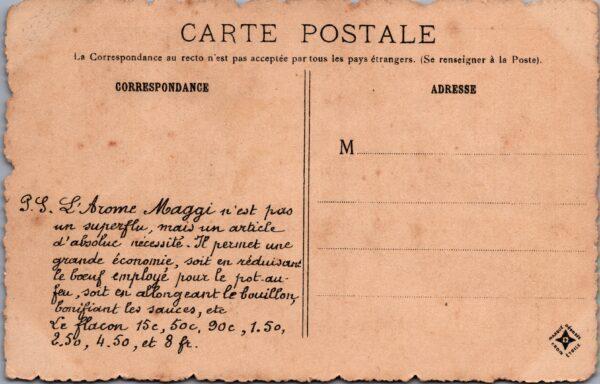 CARTE POSTALE
La Correspondance au recto n'est pas acceptée par tous les pays étrangers. (Se renseigner à la Poste).
CORRESPONDANCE
ADRESSE
M
P.S. L'Arome Maggi n'est pas
un superflu, mais un article
d'absolue nécessité. Il permet une
grande économie, soit en réduisant
le bœuf employé pour le pot-au-
feu, soit en allongeant le bouillon,
bonifiant les sauces, etc
Le flacon 15c, 50c, 90c, 1.50,
2.50, 4.50, et 8 fr.